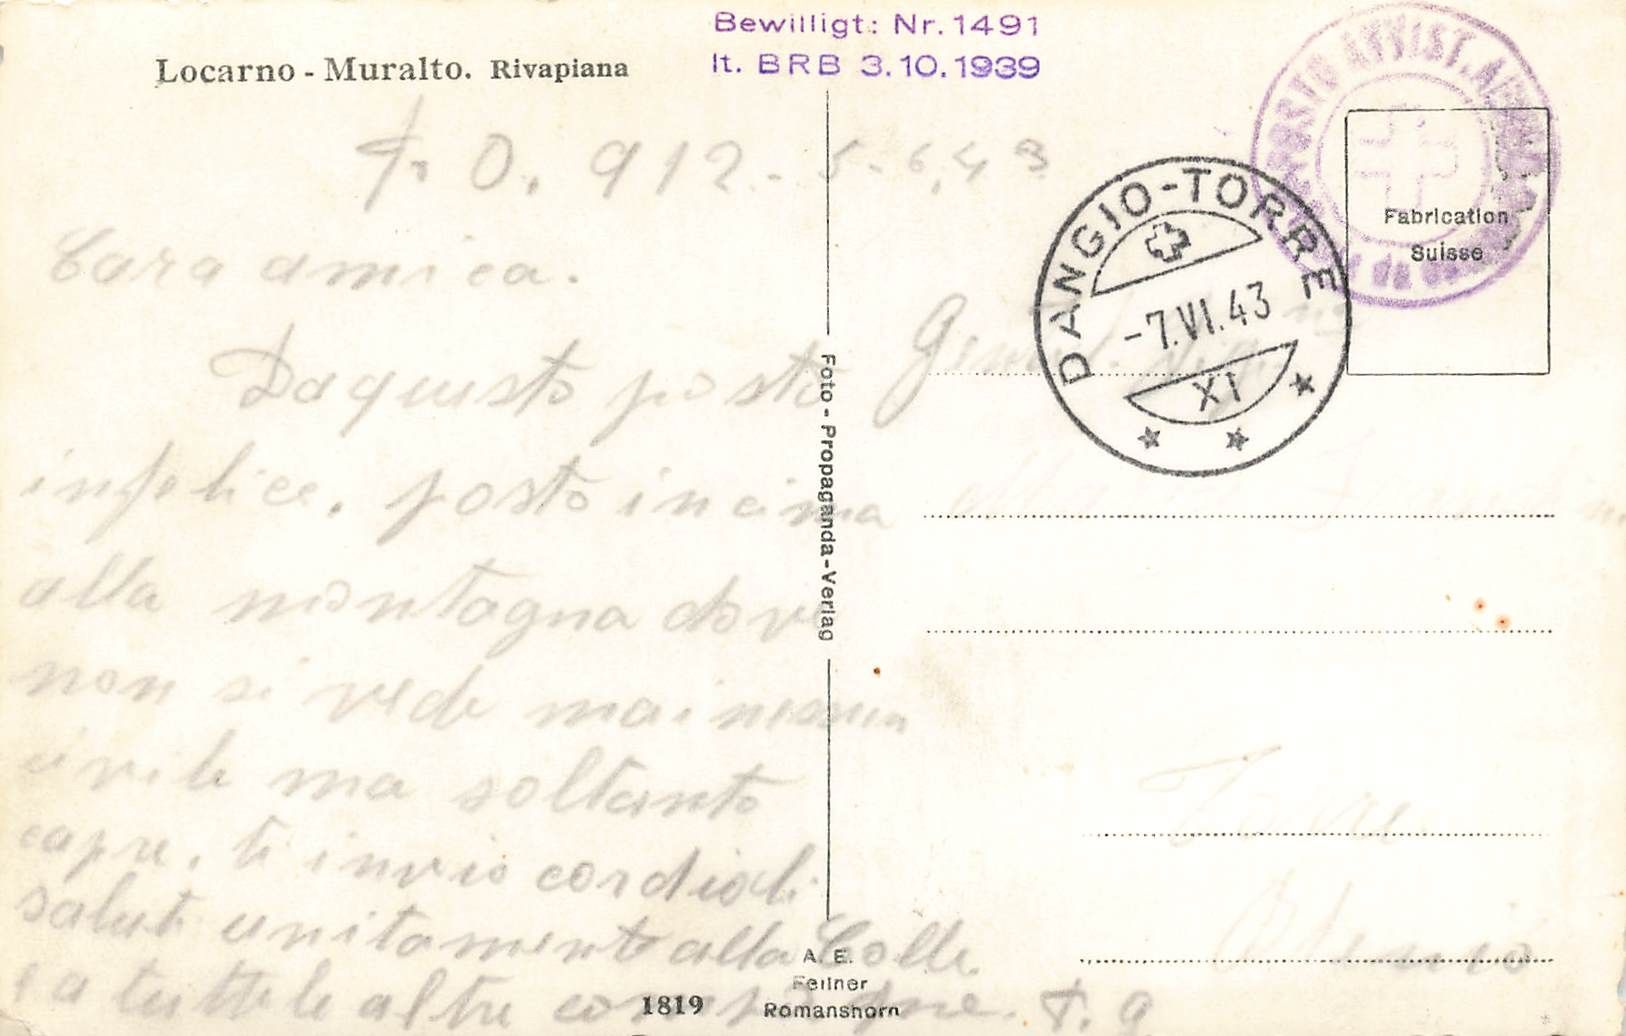 Bewilligt: Nr. 1491
lt. BRB 3.10.1939
Locarno - Muralto. Rivapiana
P. O. 912 - 5-6,43
Cara amica.
Da questo posto
infelice. posto in cima
alla montagna dove
non si vede mai nessun
civile ma soltanto
capre. ti invio cordiali
saluti unitamente alla Colle.
e a tutte le altre
1819
Foto - Propaganda - Verlag
A. E.
Fellner
Romanshorn
DANGIO-TORRE
-7.VI.43
XI
AVVIST.
Fabrication
Suisse
Gent.
Torre